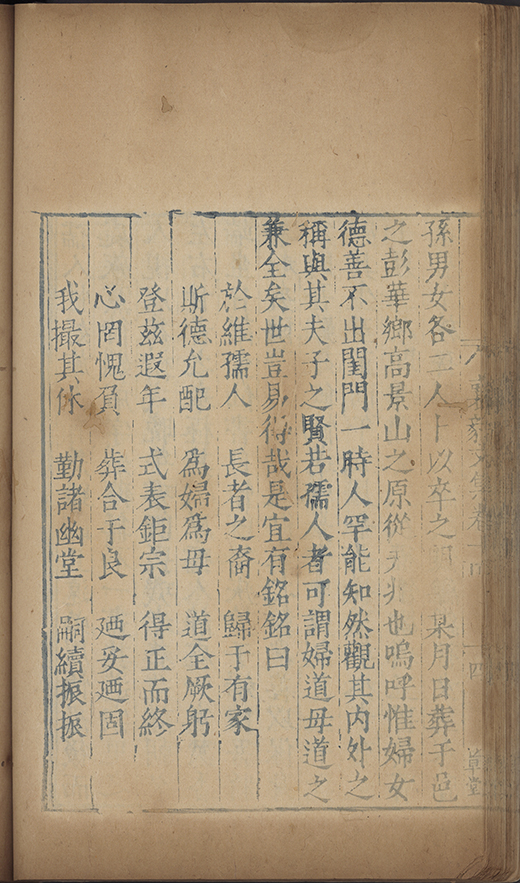 文集卷
草堂
孫男女各二人卜以卒之 某月日葬于邑
之彭華鄉高景山之原從尹兆也嗚呼惟婦女
德善不出閨門一時人罕能知然觀其内外之
稱與其夫子之賢若孺人者可謂婦道母道之
兼全矣世豈易得哉是宜有銘銘曰
於維孺人 長者之裔 歸于有家
斯德允配 爲婦爲母 道全厥躬
登兹遐年 式表鉅宗 得正而終
心罔愧負 葬合于良 迺妥迺固
我撮其休 勤諸幽堂 嗣續振振